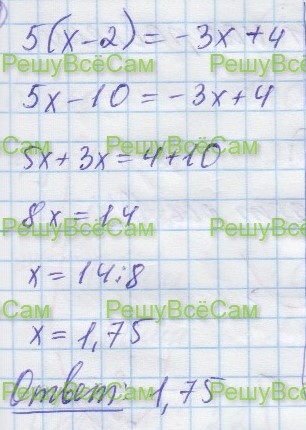 5(x-2)=-3x+4
РешуВсёСам РешуВсёСам
5x-10=-3x+4
РешуВсёСам РешуВсёСам
5x+3x=4+10
РешуВсёСам
8x=14
РешуВсёСам
x=14:8
РешуВсёСам
x=1,75
РешуВсёСам
Ответ: 1,75